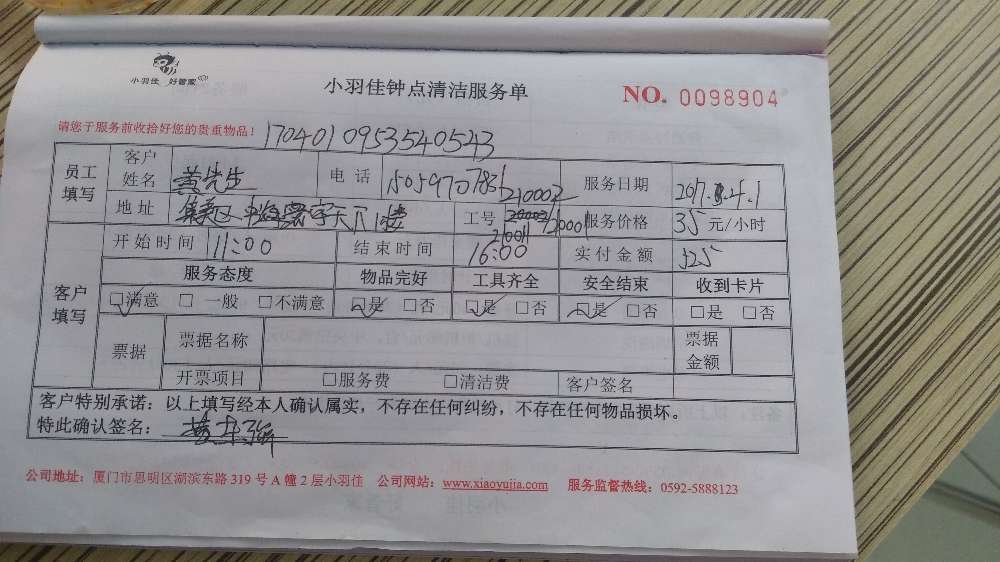 小羽佳 好管家
小羽佳钟点清洁服务单
NO. 0098904
请您于服务前收拾好您的贵重物品!
170401095354 0543
员工填写 客户姓名 黄先生 电话 服务日期 2017.4.1
地址 集美区 工号 210002 服务价格 35 元/小时
开始时间 11:00 结束时间 16:00 实付金额 525
客户填写 服务态度 物品完好 工具齐全 安全结束 收到卡片
□满意 □一般 □不满意 □是 □否 □是 □否 □是 □否 □是 □否
票据 票据名称 票据金额
开票项目 □服务费 □清洁费 客户签名
客户特别承诺:以上填写经本人确认属实,不存在任何纠纷,不存在任何物品损坏。
特此确认签名:
公司地址:厦门市思明区湖滨东路 319 号 A 幢 2 层小羽佳 公司网站:www.xiaoyujia.com 服务监督热线:0592-5888123